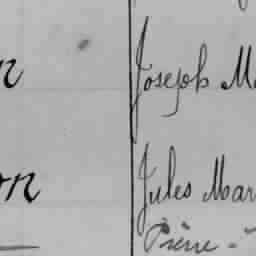 n Joseph M
on Jules Mar
Pierre -